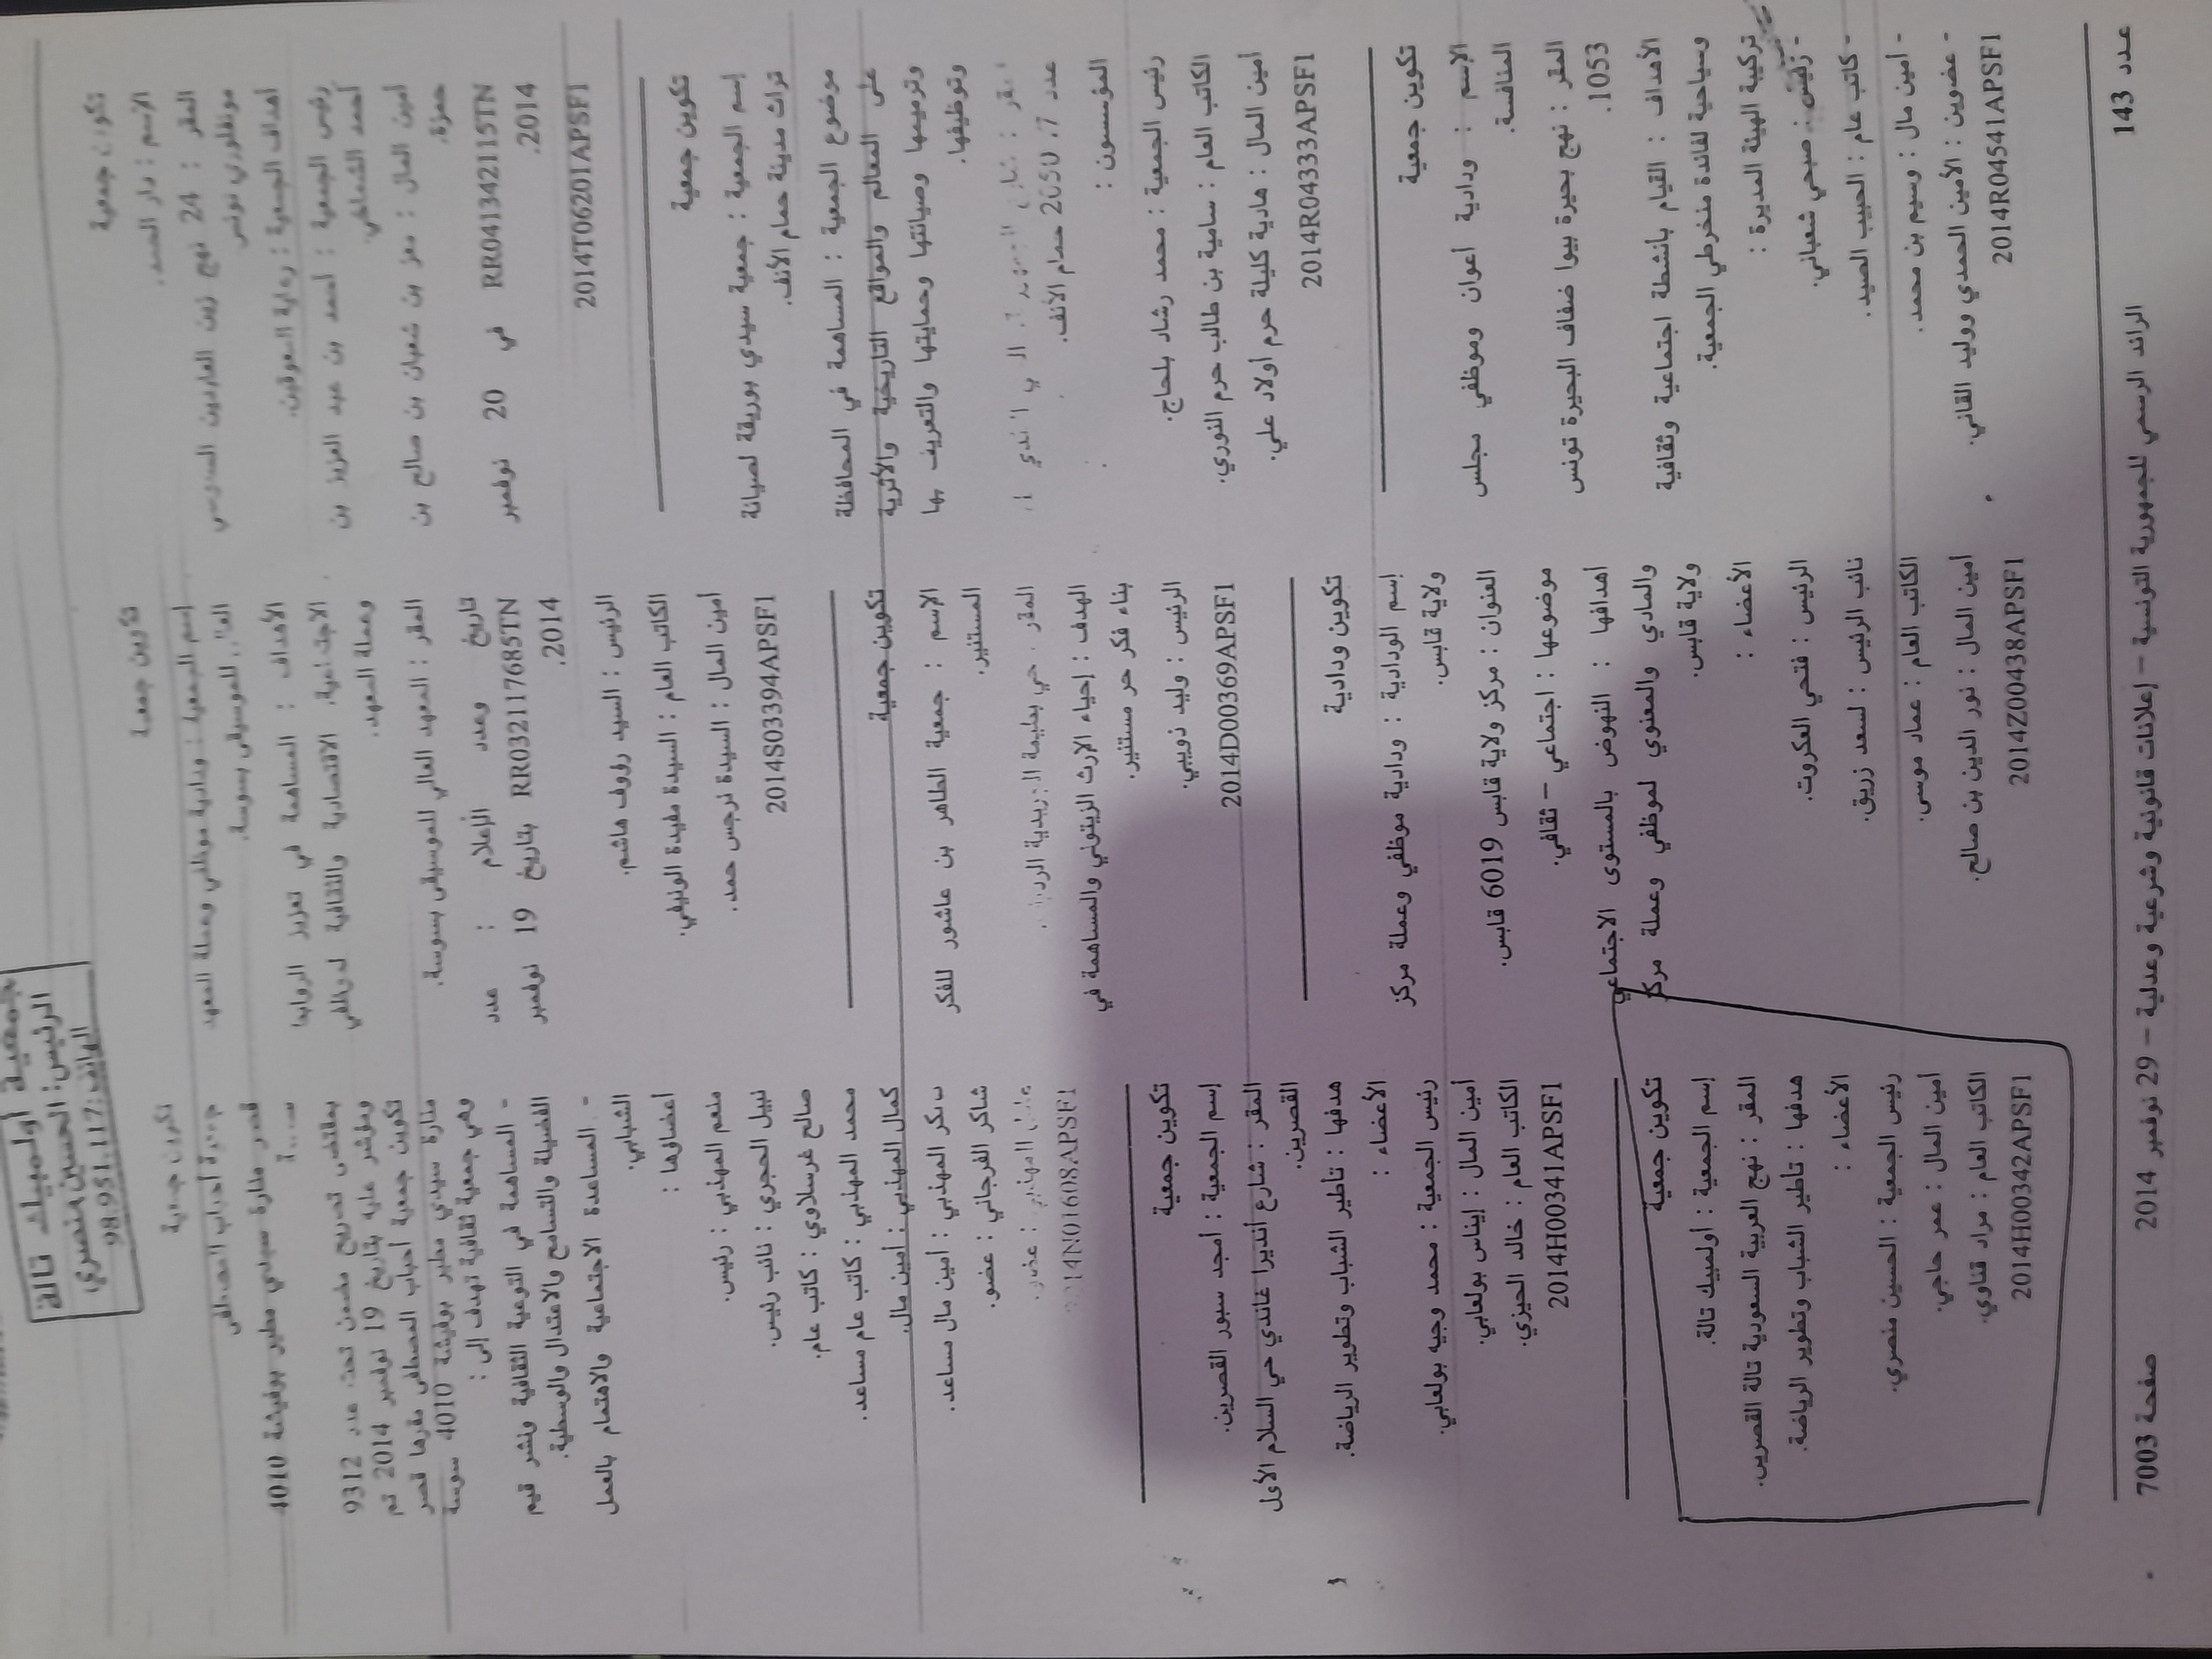 جمعية أولمبيك تالة
الرئيس: الحسين منصري
الهاتف: 98.951.117
تكوين جمعية
الاسم : دار
المقر : 24 نهج زين العابدين السنوسي
مونفلوري تونس.
أهداف الجمعية : رعاية المعوقين.
رئيس الجمعية : أحمد بن عبد العزيز بن
أحمد الشماخي.
أمين المال : معز بن شعبان بن صالح بن
حمزة.
RR041342115TN في 20 نوفمبر
2014.
2014T06201APSF1
تكوين جمعية
إسم الجمعية : جمعية سيدي بوريقة لصيانة
تراث مدينة حمام الأنف.
موضوع الجمعية : المساهمة في المحافظة
على المعالم والمواقع التاريخية والأثرية
وترميمها وصيانتها وحمايتها والتعريف بها
وتوظيفها.
عدد 7، 2050 حمام الأنف.
المؤسسون :
رئيس الجمعية : محمد رشاد بلحاج.
الكاتب العام : سامية بن طالب حرم النوري.
أمين المال : هادية كليلة حرم أولاد علي.
2014R04333APSF1
تكوين جمعية
الإسم : ودادية أعوان وموظفي مجلس
المنافسة.
المقر : نهج بحيرة بيوا ضفاف البحيرة تونس
1053.
الأهداف : القيام بأنشطة اجتماعية وثقافية
وسياحية لفائدة منخرطي الجمعية.
تركيبة الهيئة المديرة :
- رئيس : صبحي شعباني.
- كاتب عام : الحبيب الصيد.
- أمين مال : وسيم بن محمد.
- عضوين : الأمين الحمدي ووليد القاني.
2014R04541APSF1
تكوين جمعية
إسم الجمعية : ودادية موظفي وعملة المعهد
العالي للموسيقى بسوسة.
الأهداف : المساهمة في تعزيز الروابط
الاجتماعية، الاقتصادية والثقافية لموظفي
وعملة المعهد.
المقر : المعهد العالي للموسيقى بسوسة.
تاريخ وعدد الإعلام : عدد
RR032117685TN بتاريخ 19 نوفمبر
2014.
الرئيس : السيد رؤوف هاشم.
الكاتب العام : السيدة مفيدة الونيفي.
أمين المال : السيدة نرجس حمد.
2014S03394APSF1
تكوين جمعية
الإسم : جمعية الطاهر بن عاشور للفكر
المستنير.
الهدف : إحياء الإرث الزيتوني والمساهمة في
بناء فكر حر مستنير.
الرئيس : وليد ذويبي.
2014D00369APSF1
تكوين ودادية
إسم الودادية : ودادية موظفي وعملة مركز
ولاية قابس.
العنوان : مركز ولاية قابس 6019 قابس.
موضوعها : اجتماعي - ثقافي.
أهدافها : النهوض بالمستوى الاجتماعي
والمادي والمعنوي لموظفي وعملة مركز
ولاية قابس.
الأعضاء :
الرئيس : فتحي العكروت.
نائب الرئيس : لسعد زريق.
الكاتب العام : عماد موسى.
أمين المال : نور الدين بن صالح.
2014Z00438APSF1
تكوين جمعية
جمعية أحباب المصطفى
قصر منارة سيدي مطير بوفيشة 4010
سوسة
بمقتضى تصريح مضمن تحت عدد 9312
ومؤشر عليه بتاريخ 19 نوفمبر 2014 تم
تكوين جمعية أحباب المصطفى مقرها قصر
منارة سيدي مطير بوفيشة 4010 سوسة
وهي جمعية ثقافية تهدف إلى :
- المساهمة في التوعية الثقافية ونشر قيم
الفضيلة والتسامح والاعتدال والوسطية.
- المساعدة الاجتماعية والاهتمام بالعمل
الشبابي.
أعضاؤها :
منعم المهذبي : رئيس.
نبيل الحجري : نائب رئيس.
صالح غرسلاوي : كاتب عام.
محمد المهذبي : كاتب عام مساعد.
كمال المهذبي : أمين مال.
المهذبي : أمين مال مساعد.
شاكر الفرجاني : عضو.
المهذبي : عضو.
2014N01608APSF1
تكوين جمعية
إسم الجمعية : أمجد سبور القصرين.
المقر : شارع أنديرا غاندي حي السلام الأول
القصرين.
هدفها : تأطير الشباب وتطوير الرياضة.
الأعضاء :
رئيس الجمعية : محمد وجيه بولعابي.
أمين المال : إيناس بولعابي.
الكاتب العام : خالد الحيزي.
2014H00341APSF1
تكوين جمعية
إسم الجمعية : أولمبيك تالة.
المقر : نهج العربية السعودية تالة القصرين.
هدفها : تأطير الشباب وتطوير الرياضة.
الأعضاء :
رئيس الجمعية : الحسين منصري.
أمين المال : عمر حاجي.
الكاتب العام : مراد قناوي.
2014H00342APSF1
عـدد 143
الرائد الرسمي للجمهورية التونسية – إعلانات قانونية وشرعية وعدلية – 29 نوفمبر 2014
صفحة 7003